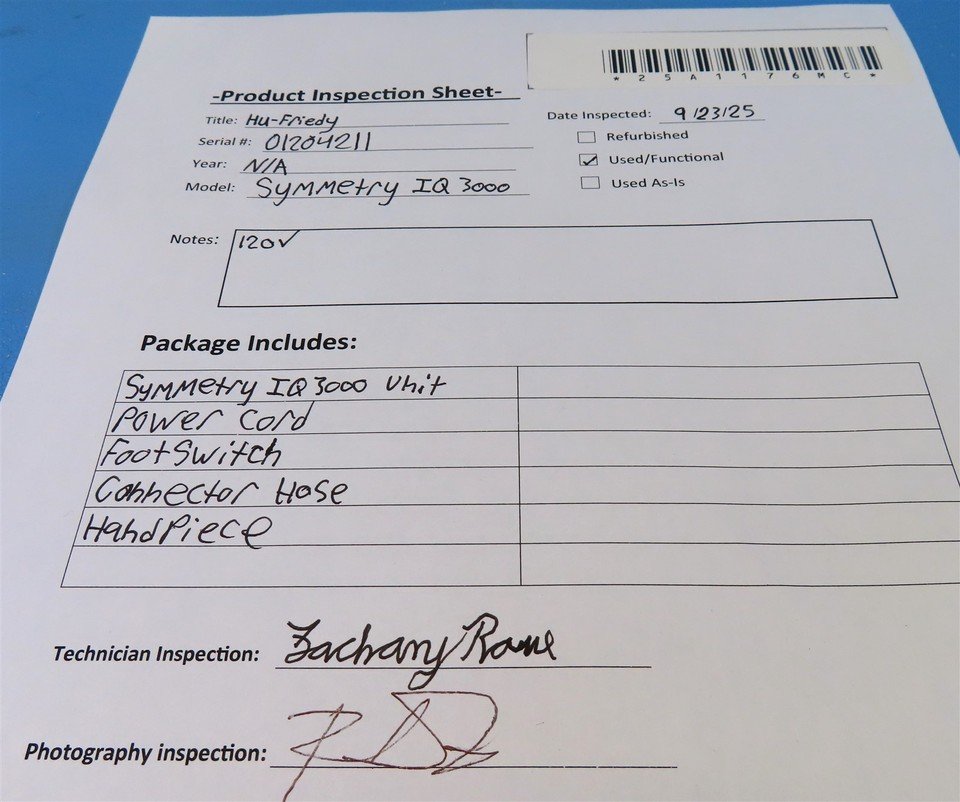 *25A1176MC*
-Product Inspection Sheet-
Title: Hu-Friedy
Serial #: 01204211
Year: N/A
Model: Symmetry IQ 3000
Date Inspected: 9/23/25
Refurbished
Used/Functional
Used As-Is
Notes: 120V
Package Includes:
Symmetry IQ 3000 Unit
Power Cord
FootSwitch
Connector Hose
HandPiece
Technician Inspection: Zachary
Photography inspection: